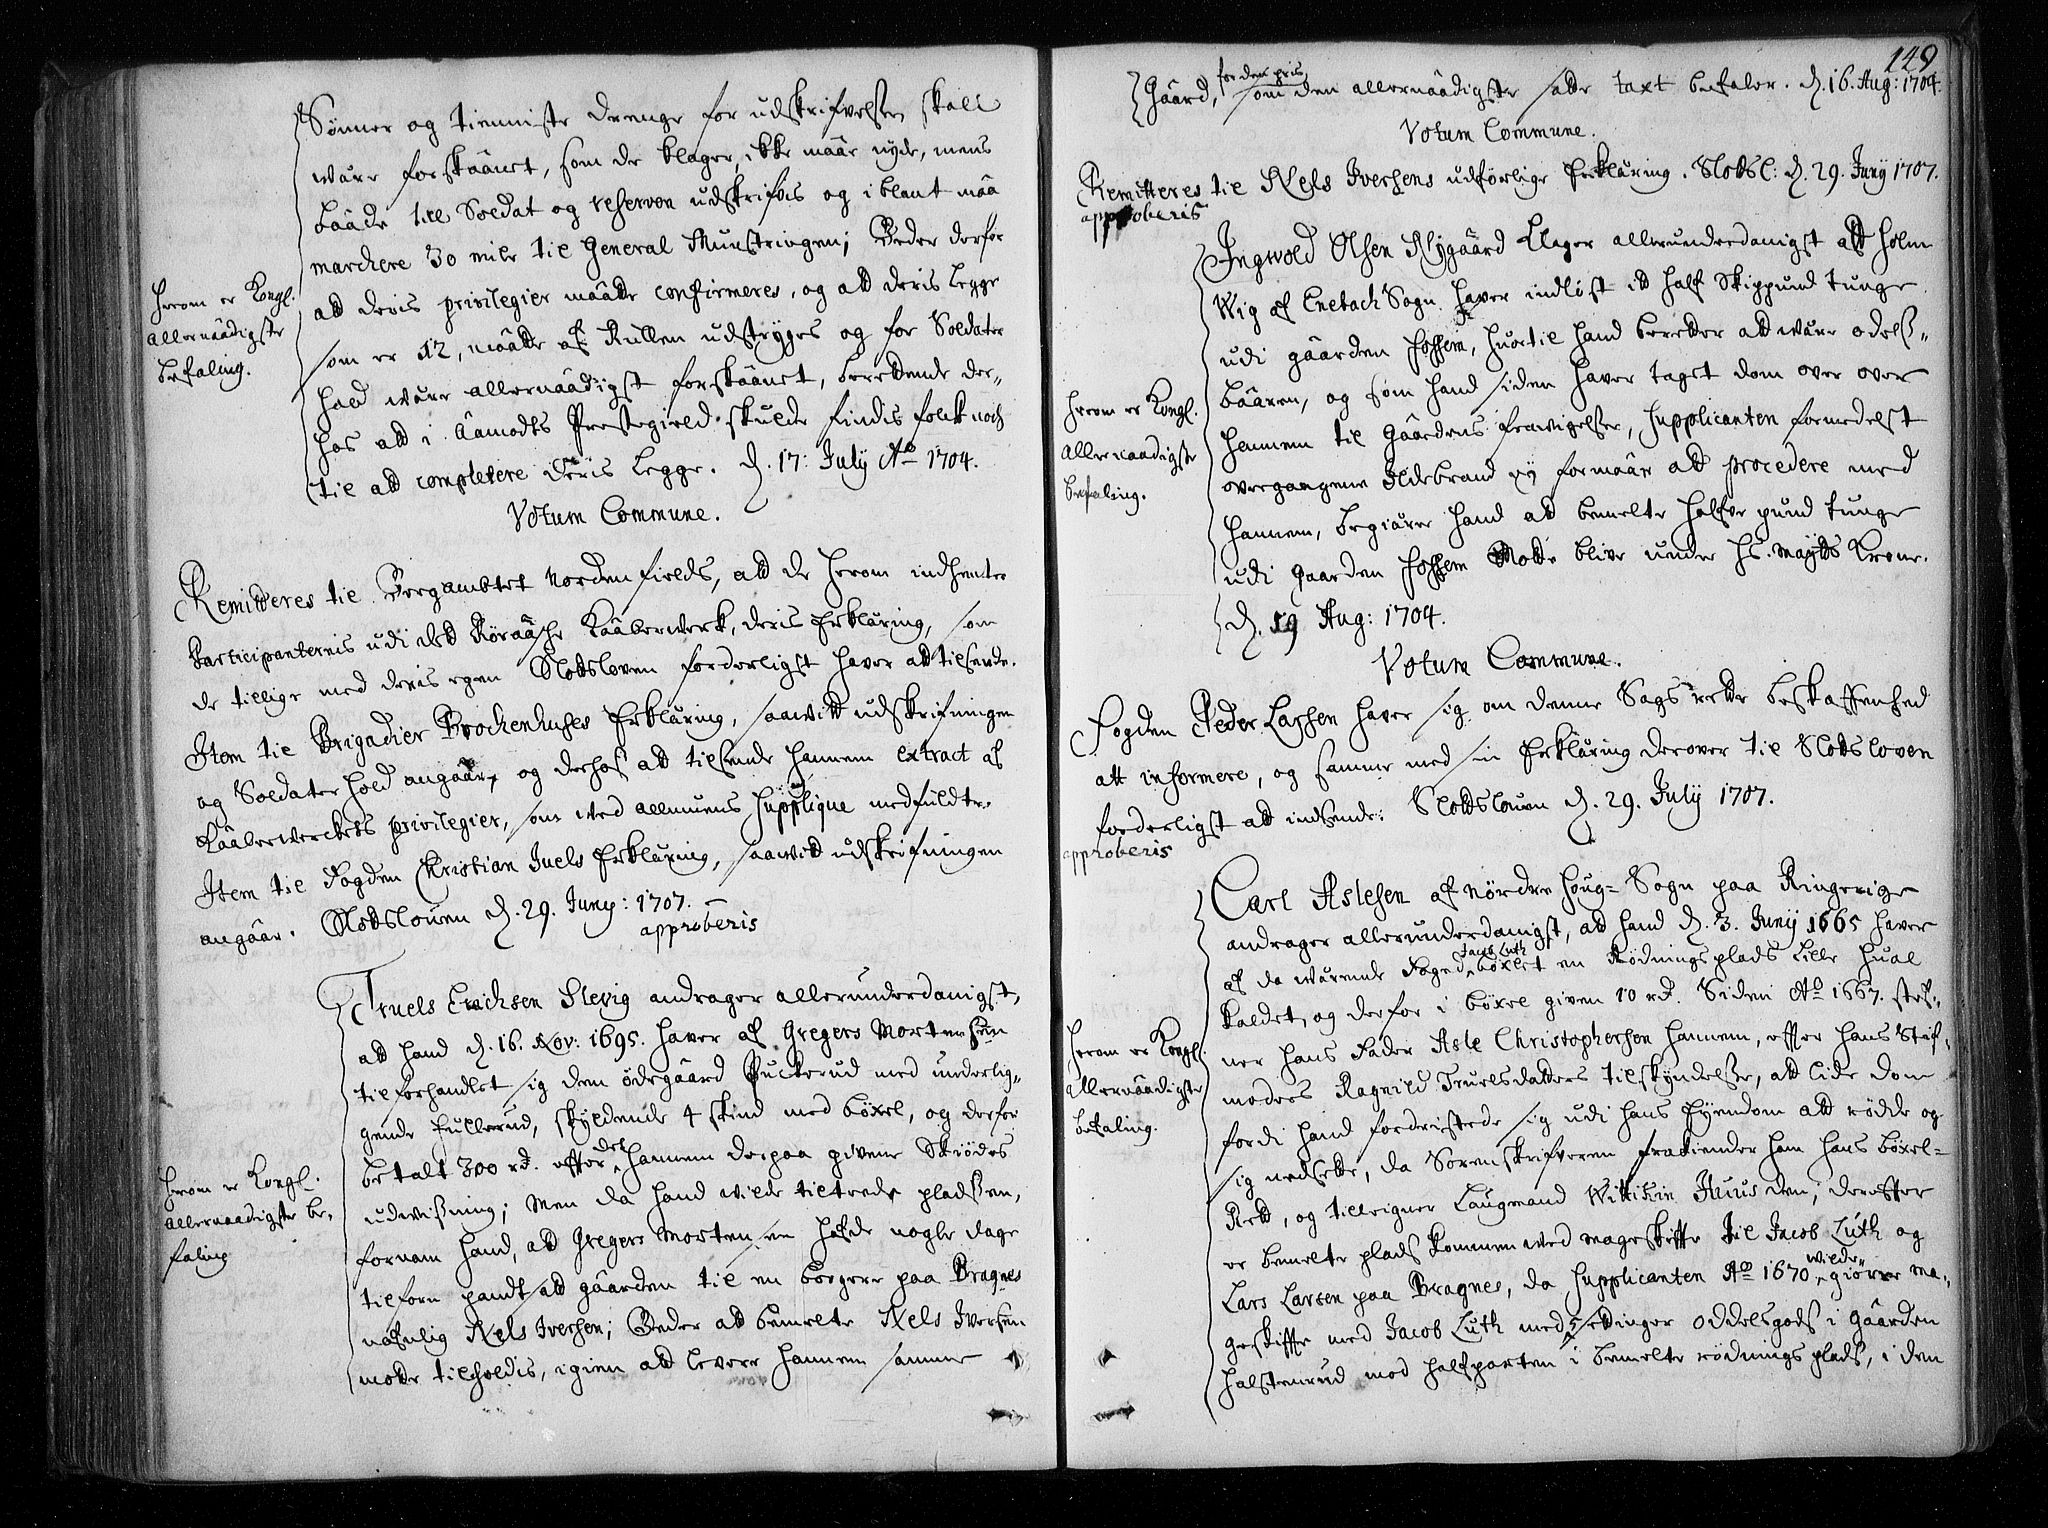 Sønner og tienniste drenge for udskrifvelsen skall
være forskaanet, som de klager, ikke maar nyde, mens
baade till Soldat og reserven udskrifves og iblant maa
marchere 30 mile til General Munstringen; Beder derfor
att deris privilegier maatte confirmeres, og att deris Legge
som er 12, maatte af Rullen udstryges og for Soldater
hold være allernaadigst forskaanet, berettende der,,
hos att i Aamodts Prestegield skulde findis folck noch
til att completere deris Legge. D. 17. July Ao 1704.
Herom er Kongl.
allernaadigste
befaling.
Votum Commune.
Remitteres til Bergambtet Nordenfields, att de herom indhenter
Participanternis udi dett Røraasche Kaaberwerk, deris Erklæring, som
de tillige med deris egen Slotsloven forderligst haver att tilsende.
Item til Brigadier Brochenhuses Erklæring, saavitt udskrifningen
og Soldaterhold angaar, og derhos att tilsende hannem extract af
Kaaberverckets privilegier, som ved allmuens Supplique medfuldte.
Item til Fogden Christian Juels Erklæring, saavitt udskrifningen
angaar. Slotslouen D. 29. Juny: 1707.
approberis
Truels Erichsen Slevig andrager allerunderdanigst,
att hand D. 16. Nov: 1695. haver af Gregers Mortensen
tilforhandlet sig dem ødegaard Puckerud med underlig,,
gende Fullerud, skyldende 4 skind med bøxel, og derfor
betalt 300 rd. effter det hannem derpaa givene Skiødes
udvisning; Men da hand vilde tiltrede pladsen,
fornam hand, att Gregers Mortensen hafde nogle dage
tilforn pandtsatt gaarden til en borgere paa Bragnes
nafnlig Niels Iversen; Beder att bemelte Niels Iversen
motte tilholdis, igien att levere hannem samme
Herom er Kongl.
allernaadigste be,,
faling
149
Gaard, for den pris som den allernaadigste satte taxt befaler. D. 16. Aug: 1704.
Votum Commune.
Remitteres til Niels Iversens udførlige Erklæring. Slotsl: D. 29. Juny 1707.
approberis
Ingwold Olsen Nygaard klager allerunderdanigst att Holm
Wig af Enebach Sogn haver indløst it half Skippund tunge
udi gaarden Fossem, huortil hand beretter att være odels,,
baaren, og som hand siden haver taget dom over over
hannem til Gaardens fravigelse, Supplicanten formedelst
overgangene Ildebrand ey formaar att procedere med
hannem, begiærer hand att bemelte halfve pund tunge
udi gaarden Fossem Motte blive under Hs. Mayts Krone.
D. 19 Aug: 1704.
Herom er Kongl.
allernaadigste
befaling.
Votum Commune.
Fogden Peder Lassen haver sig om denne Sags rette beskaffenhed
att informere, og samme med sin Erklæring derover til Slotsloven
forderligst att indsende: Slotslouen D. 29. July 1707.
approberis
Carl Aslesen af Nørdre Houg- Sogn paa Ringerige
andrager allerunderdanigst, att hand D. 3. Juny 1665 haver
af da værende Foged Jacob Luth bøxlet en Rødningsplads Lille Hual
kaldet, og derfor i bøxel given 10 rd. Siden Ao 1667. stef,,
ner hans Fader Asle Christophersen hannem, effter hans Stif,,
moders Ragnild Truelsdatters tilskyndelse, att lide dom
fordi hand fordristede sig udi hans Eyendom att rødde og
sig nedsette, da Sorenskrifveren frakiender ham hans bøxel-
Rett, og tilleigner Laugmand Wittikin Huus den; dereffter
er bemelte plads kommen ved mageskiffte til Jacob Luth og
Lars Larsen paa Bragnes, da Supplicanten Ao 1670 vilde giørre ma,,
geskiffte med Jacob Luth med 5 settinger oddelsgods i gaarden
Halstenrud mod halfparten i bemelte rødningsplads, i den
Herom er Kongl.
allernaadigste
befaling.